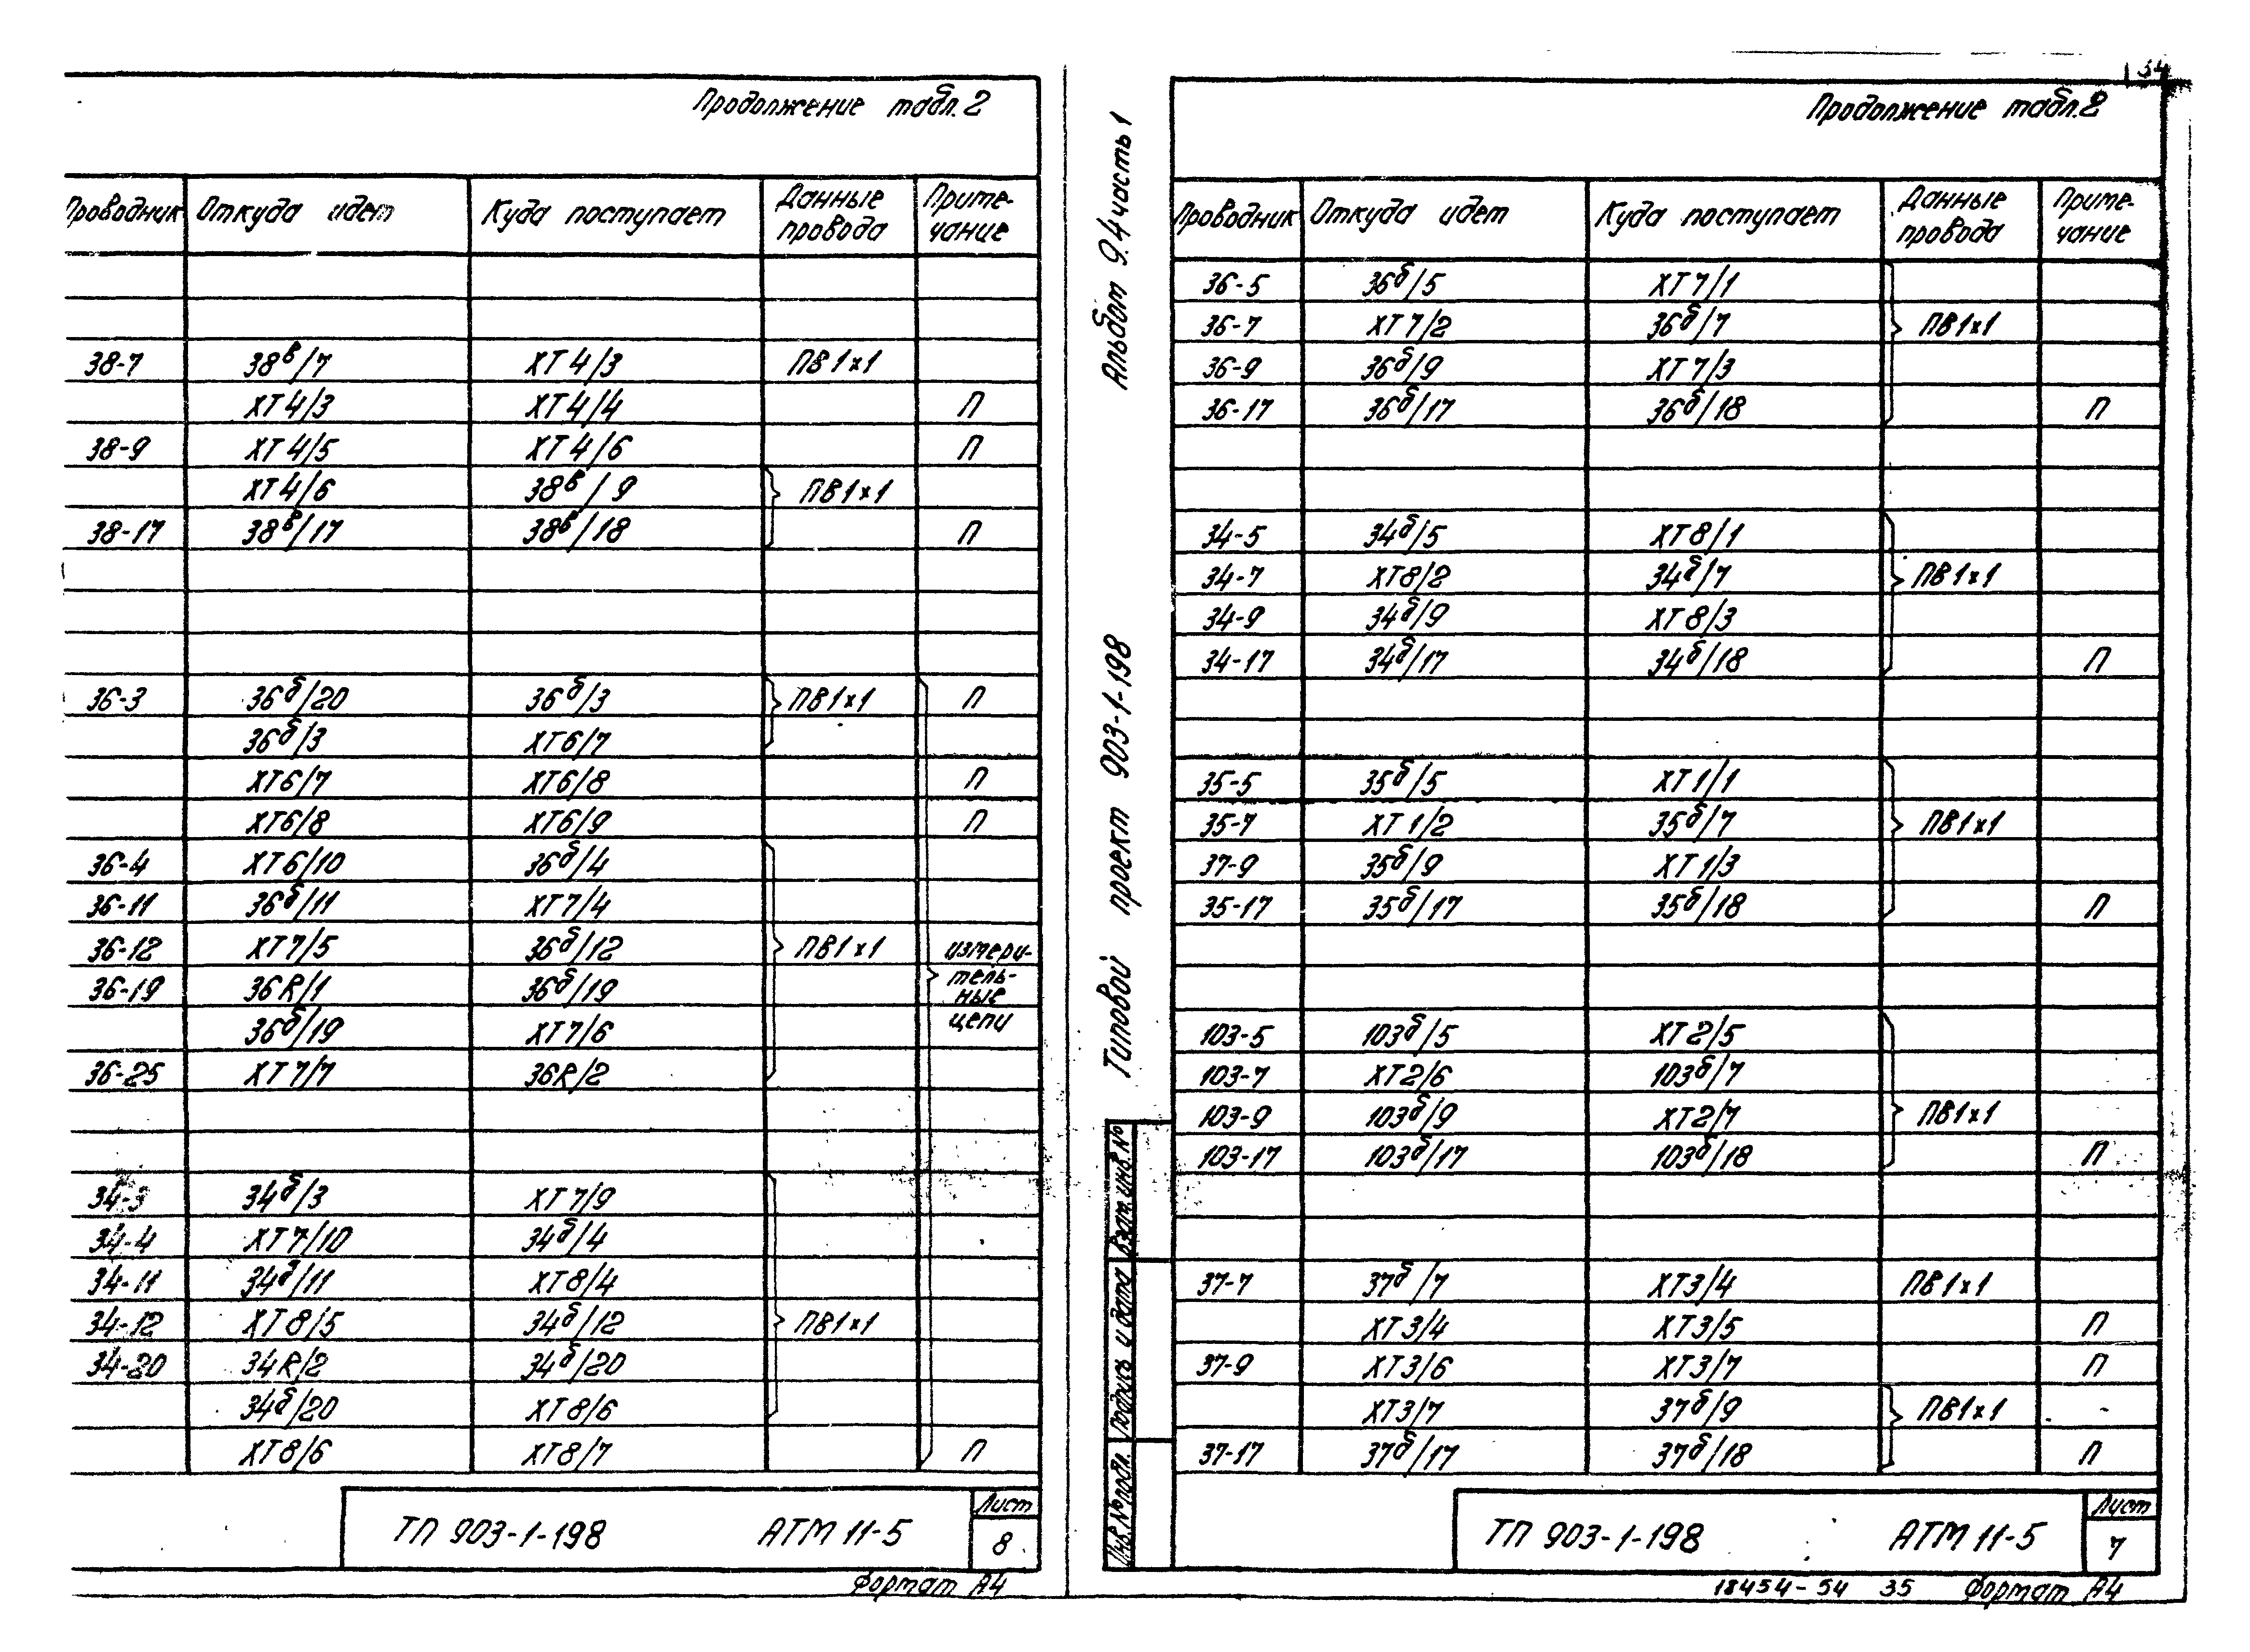 Продолжение табл. 2
Проводник Откуда идет Куда поступает Данные провода Примечание
38-7 38в/7 ХТ4/3 ПВ1×1
ХТ4/3 ХТ4/4 П
38-9 ХТ4/5 ХТ4/6 П
ХТ4/6 38в/9 ПВ1×1
38-17 38в/17 38в/18 П
36-3 36б/20 36б/3 ПВ1×1 П
36б/3 ХТ6/7
ХТ6/7 ХТ6/8 П
ХТ6/8 ХТ6/9 П
36-4 ХТ6/10 36б/4
36-11 36б/11 ХТ7/4
36-12 ХТ7/5 36б/12 ПВ1×1 измери-
36-19 36R/1 36б/19 тель-
ные
36б/19 ХТ7/6 цепи
36-25 ХТ7/7 36R/2
34-3 34б/3 ХТ7/9
34-4 ХТ7/10 34б/4
34-11 34б/11 ХТ8/4
34-12 ХТ8/5 34б/12 ПВ1×1
34-20 34R/2 34б/20
34б/20 ХТ8/6
ХТ8/6 ХТ8/7 П
ТП 903-1-198 АТМ 11-5 Лист
8
Формат А4
34
Альбом 9.4 часть 1
Типовой проект 903-1-198
Взам. инв. №
Подпись и дата
Инв. № подл.
Продолжение табл. 2
Проводник Откуда идет Куда поступает Данные провода Примечание
36-5 36б/5 ХТ7/1
36-7 ХТ7/2 36б/7 ПВ1×1
36-9 36б/9 ХТ7/3
36-17 36б/17 36б/18 П
34-5 34б/5 ХТ8/1
34-7 ХТ8/2 34б/7 ПВ1×1
34-9 34б/9 ХТ8/3
34-17 34б/17 34б/18 П
35-5 35б/5 ХТ1/1
35-7 ХТ1/2 35б/7 ПВ1×1
37-9 35б/9 ХТ1/3
35-17 35б/17 35б/18 П
103-5 103б/5 ХТ2/5
103-7 ХТ2/6 103б/7
103-9 103б/9 ХТ2/7 ПВ1×1
103-17 103б/17 103б/18 П
37-7 37б/7 ХТ3/4 ПВ1×1
ХТ3/4 ХТ3/5 П
37-9 ХТ3/6 ХТ3/7 П
ХТ3/7 37б/9 ПВ1×1
37-17 37б/17 37б/18 П
ТП 903-1-198 АТМ 11-5 Лист
7
18454-54 35 Формат А4